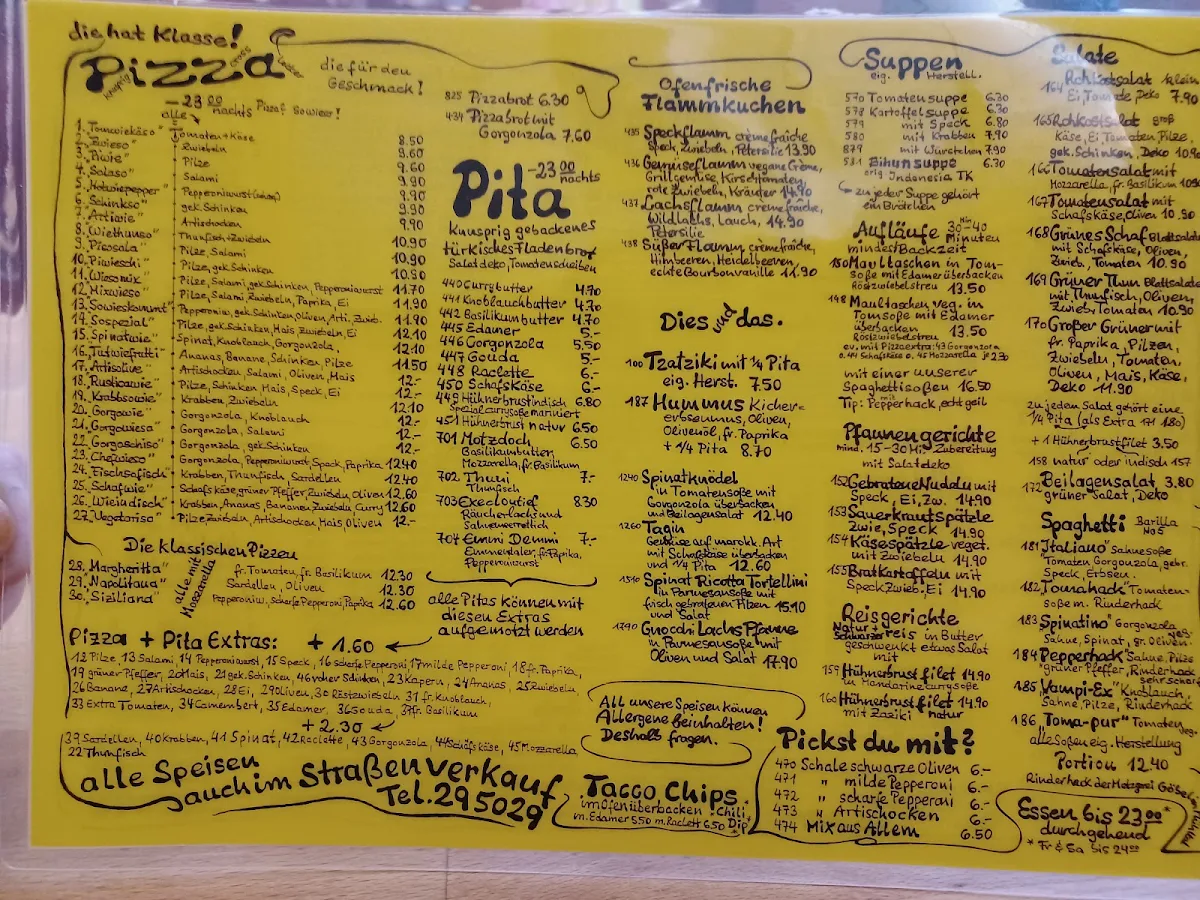 die hat Klasse!
Pizza
knusprig gross lecker
die für den
Geschmack!
- 23 00
nachts Pizza! sowieso!
alle
1. "Tomwiekäso" Tomaten+Käse 8.50
2. "Zwieso" Zwiebeln 9.60
3. "Piwie" Pilze 9.60
4. "Salaso" Salami 9.90
5. "Hotwiepepper" Pepperoniwurst (scharf) 9.90
6. "Schinkso" gek. Schinken 9.90
7. "Artiwie" Artischocken 9.90
8. "Wiethunso" Thunfisch+Zwiebeln 10.90
9. "Picosala" Pilze, Salami 10.90
10. "Piwieschi" Pilze, gek. Schinken 10.90
11. "Wiesomix" Pilze, Salami, gek. Schinken, Pepperoniwurst 11.70
12. "Mixwieso" Pilze, Salami, Zwiebeln, Paprika, Ei 11.90
13. "Sowieskommt" Pepperoni, gek. Schinken, Oliven, Arti., Zwieb. 11.90
14. "Sospezial" Pilze, gek. Schinken, Mais, Zwiebeln, Ei 12.10
15. "Spinatwie" Spinat, Knoblauch, Gorgonzola, 12.10
16. "Tutwiefrutti" Ananas, Banane, Schinken, Pilze 11.50
17. "Artisolive" Artischocken, Salami, Oliven, Mais 12.-
18. "Rusticowie" Pilze, Schinken, Mais, Speck, Ei 12.-
19. "Krabbsowie" Krabben, Zwiebeln 12.10
20. "Gorgowie" Gorgonzola, Knoblauch 12.-
21. "Gorgowiesa" Gorgonzola, Salami 12.-
22. "Gorgoschiso" Gorgonzola, gek. Schinken 12.-
23. "Chefwieso" Gorgonzola, Pepperoniwurst, Speck, Paprika 12.40
24. "Fischsofisch" Krabben, Thunfisch, Sardellen 12.40
25. "Schafwie" Schafskäse, grüner Pfeffer, Zwiebeln, Oliven 12.60
26. "Wieindisch" Krabben, Ananas, Bananen, Zwiebeln, Curry 12.60
27. "Vegetariso" Pilze, Zwiebeln, Artischocken, Mais, Oliven 12.-
Die klassischen Pizzen
alle mit Mozzarella
28. "Margheritta" fr. Tomaten, fr. Basilikum 12.30
29. "Napolitana" Sardellen, Oliven 12.30
30. "Siziliana" Pepperoniw., scharfe Pepperoni, Paprika 12.60
Pizza + Pita Extras: + 1.60
12 Pilze, 13 Salami, 14 Pepperoniwurst, 15 Speck, 16 scharfe Pepperoni, 17 milde Pepperoni, 18 fr. Paprika,
19 grüner Pfeffer, 20 Mais, 21 gek. Schinken, 46 roher Schinken, 23 Kapern, 24 Ananas, 25 Zwiebeln,
26 Banane, 27 Artischocken, 28 Ei, 29 Oliven, 30 Röstzwiebeln, 31 fr. Knoblauch,
33 Extra Tomaten, 34 Camembert, 35 Edamer, 36 Gouda, 37 fr. Basilikum
+2.30
39 Sardellen, 40 Krabben, 41 Spinat, 42 Raclette, 43 Gorgonzola, 44 Schafskäse, 45 Mozzarella
22 Thunfisch
alle Speisen
auch im Straßenverkauf
Tel. 295029
825 Pizzabrot 6.30
434 Pizzabrot mit
Gorgonzola 7.60
Pita - 23 00
nachts
Knusprig gebackenes
türkisches Fladenbrot
Salatdeko, Tomatenscheiben
440 Currybutter 4.70
441 Knoblauchbutter 4.70
442 Basilikumbutter 4.70
445 Edamer 5.-
446 Gorgonzola 5.50
447 Gouda 5.-
448 Raclette 6.-
450 Schafskäse 6.-
449 Hühnerbrust indisch 6.80
Spezialcurrysoße mariniert
451 Hühnerbrust natur 6.50
701 Motzdoch 6.50
Basilikumbutter,
Mozzarella, fr. Basilikum
702 Thuni 7.-
Thunfisch
703 Execloutief 8.30
Räucherlachs und
Sahnemeerrettich
704 Emmi Demmi 7.-
Emmentaler, fr. Paprika,
Pepperoniwurst
alle Pitas können mit
diesen Extras
aufgemotzt werden
Ofenfrische
Flammkuchen
435 Speckflamm crème fraîche
Speck, Zwiebeln, Petersilie 13.90
436 Gemüseflamm vegane Crème,
Grillgemüse, Kirschtomaten,
rote Zwiebeln, Kräuter 14.90
437 Lachsflamm crème fraîche,
Wildlachs, Lauch, 14.90
Petersilie
438 Süßer Flamm crème fraîche,
Himbeeren, Heidelbeeren,
echte Bourbonvanille 11.90
Dies und das.
100 Tzatziki mit ¼ Pita
eig. Herst. 7.50
187 Hummus Kicher-
erbsenmus, Oliven,
Olivenöl, fr. Paprika
+ ¼ Pita 8.70
1240 Spinatknödel
in Tomatensoße mit
Gorgonzola überbacken
und Beilagensalat 12.40
1260 Tagin
Gemüse auf marokk. Art
mit Schafskäse überbacken
und ¼ Pita 12.60
1510 Spinat Ricotta Tortellini
in Parmesansoße mit
frisch gebratenen Pilzen 15.10
und Salat
1790 Gnocchi Lachs Pfanne
in Parmesansoße mit
Oliven und Salat 17.90
All unsere Speisen können
Allergene beinhalten!
Deshalb fragen.
Tacco Chips
im Ofen überbacken + Chili
m. Edamer 5.50 m. Raclett 6.50 Dip
Suppen
eig. Herstell.
570 Tomatensuppe 6.30
578 Kartoffelsuppe 6.30
579 mit Speck 6.80
580 mit Krabben 7.90
879 mit Würstchen 7.90
581 Bihunsuppe 6.70
orig. Indonesia TK
zu jeder Suppe gehört
ein Brötchen
Aufläufe 30-40
Minuten
mindest Backzeit
150 Maultaschen in Tom-
soße mit Edamer überbacken
Röstzwiebelstreu 13.50
148 Maultaschen veg. in
Tomsoße mit Edamer
überbacken 13.50
Röstzwiebelstreu
ev. mit Pizzaextra: 43 Gorgonzola
o. 44 Schafskäse o. 45 Mozzarella je 2.30
mit einer unserer
Spaghettisoßen 16.50
Tip: Pepperhack, echt geil
Pfannengerichte
mind. 15-30 Min. Zubereitung
mit Salatdeko
152 Gebratene Nudeln mit
Speck, Ei, Zw. 14.90
153 Sauerkrautspätzle
Zwie, Speck 14.90
154 Käsespätzle veget.
mit Zwiebeln 14.90
155 Bratkartoffeln mit
Speck, Zwieb., Ei 14.90
Reisgerichte
Natur +
Schwarzer reis in Butter
geschwenkt etwas Salat
mit
159 Hühnerbrustfilet 14.90
in Mandarinecurrysoße
160 Hühnerbrustfilet 14.90
mit Zaziki "natur
Pickst du mit?
470 Schale schwarze Oliven 6.-
471 " milde Pepperoni 6.-
472 " scharfe Pepperoni 6.-
473 " Artischocken 6.-
474 Mix aus Allem 6.50
Salate
164 Rohkostsalat klein
Ei, Tomate, Deko 7.90
165 Rohkostsalat groß
Käse, Ei, Tomaten, Pilze,
gek. Schinken, Deko 10.90
166 Tomatensalat mit
Mozzarella, fr. Basilikum 10.90
167 Tomatensalat mit
Schafskäse, Oliven 10.90
168 Grünes Schaf Blattsalate
mit Schafskäse, Oliven,
Zwieb., Tomaten 10.90
169 Grüner Thun Blattsalate
mit Thunfisch, Oliven,
Zwieb., Tomaten 10.90
170 Großer Grüner mit
fr. Paprika, Pilzen,
Zwiebeln, Tomaten,
Oliven, Mais, Käse,
Deko 11.90
zu jedem Salat gehört eine
¼ Pita (als Extra 171 1.80)
+ 1 Hühnerbrustfilet 3.50
158 natur oder indisch 157
172 Beilagensalat 3.80
grüner Salat, Deko
Spaghetti Barilla
No 5
181 "Italiano" Sahnesoße
Tomaten, Gorgonzola, gebr.
Speck, Erbsen.
182 "Tomahack" Tomaten-
soße m. Rinderhack
183 "Spinatino" Gorgonzola
Sahne, Spinat, gr. Oliven veg.
184 "Pepperhack" Sahne, Pilze
grüner Pfeffer, Rinderhack
sehr scharf
185 "Vampi-Ex" Knoblauch,
Sahne, Pilze, Rinderhack
186 "Toma-pur" Tomaten veg.
alle Soßen eig. Herstellung
Portion 12.40
Rinderhack der Metzgerei
Essen bis 23 00*
durchgehend
* Fr & Sa bis 24 00